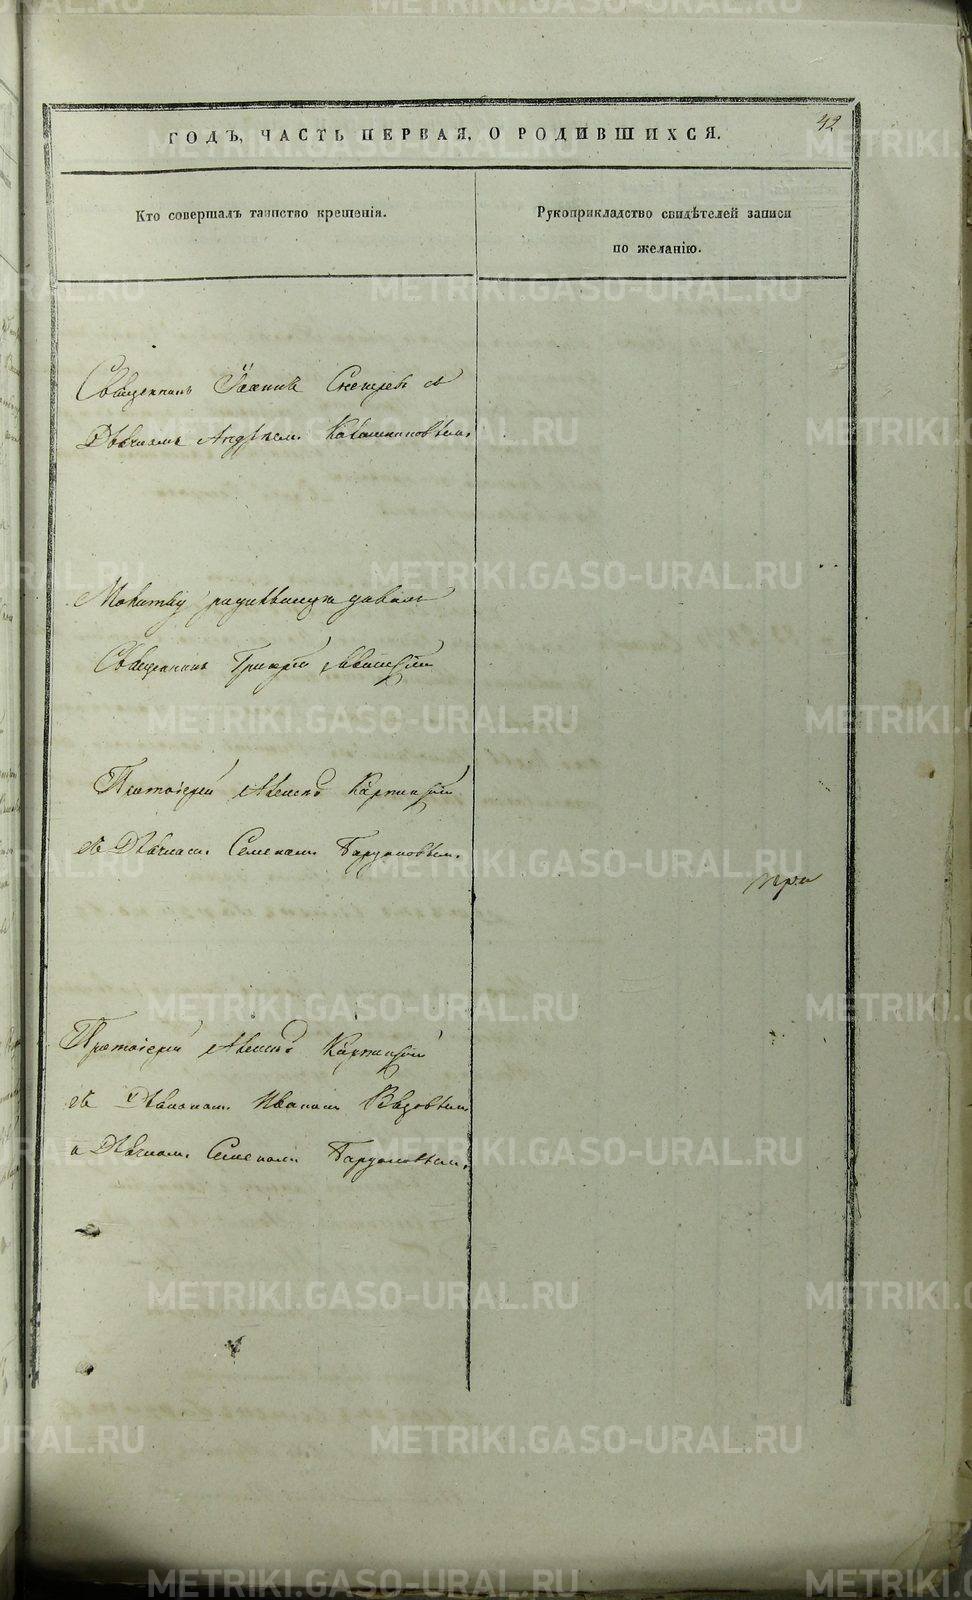 42
ГОДЪ, ЧАСТЬ ПЕРВАЯ, О РОДИВШИХСЯ.
Кто совершалъ таинство крещенія.
Рукоприкладство свидѣтелей записи
по желанію.
Священникъ Іоаннъ съ
Дьячкомъ Андреем. Калашниковым.
Молитву родившимъ давалъ
Священникъ Григорій
Протоіерей Алексѣй Карпинскій
съ Дьячком. Семеном.
при
Протоіерей Алексѣй Карпинскій
съ Дьякономъ Иваномъ
и Дьячком. Семеном.
METRIKI.GASO-URAL.RU